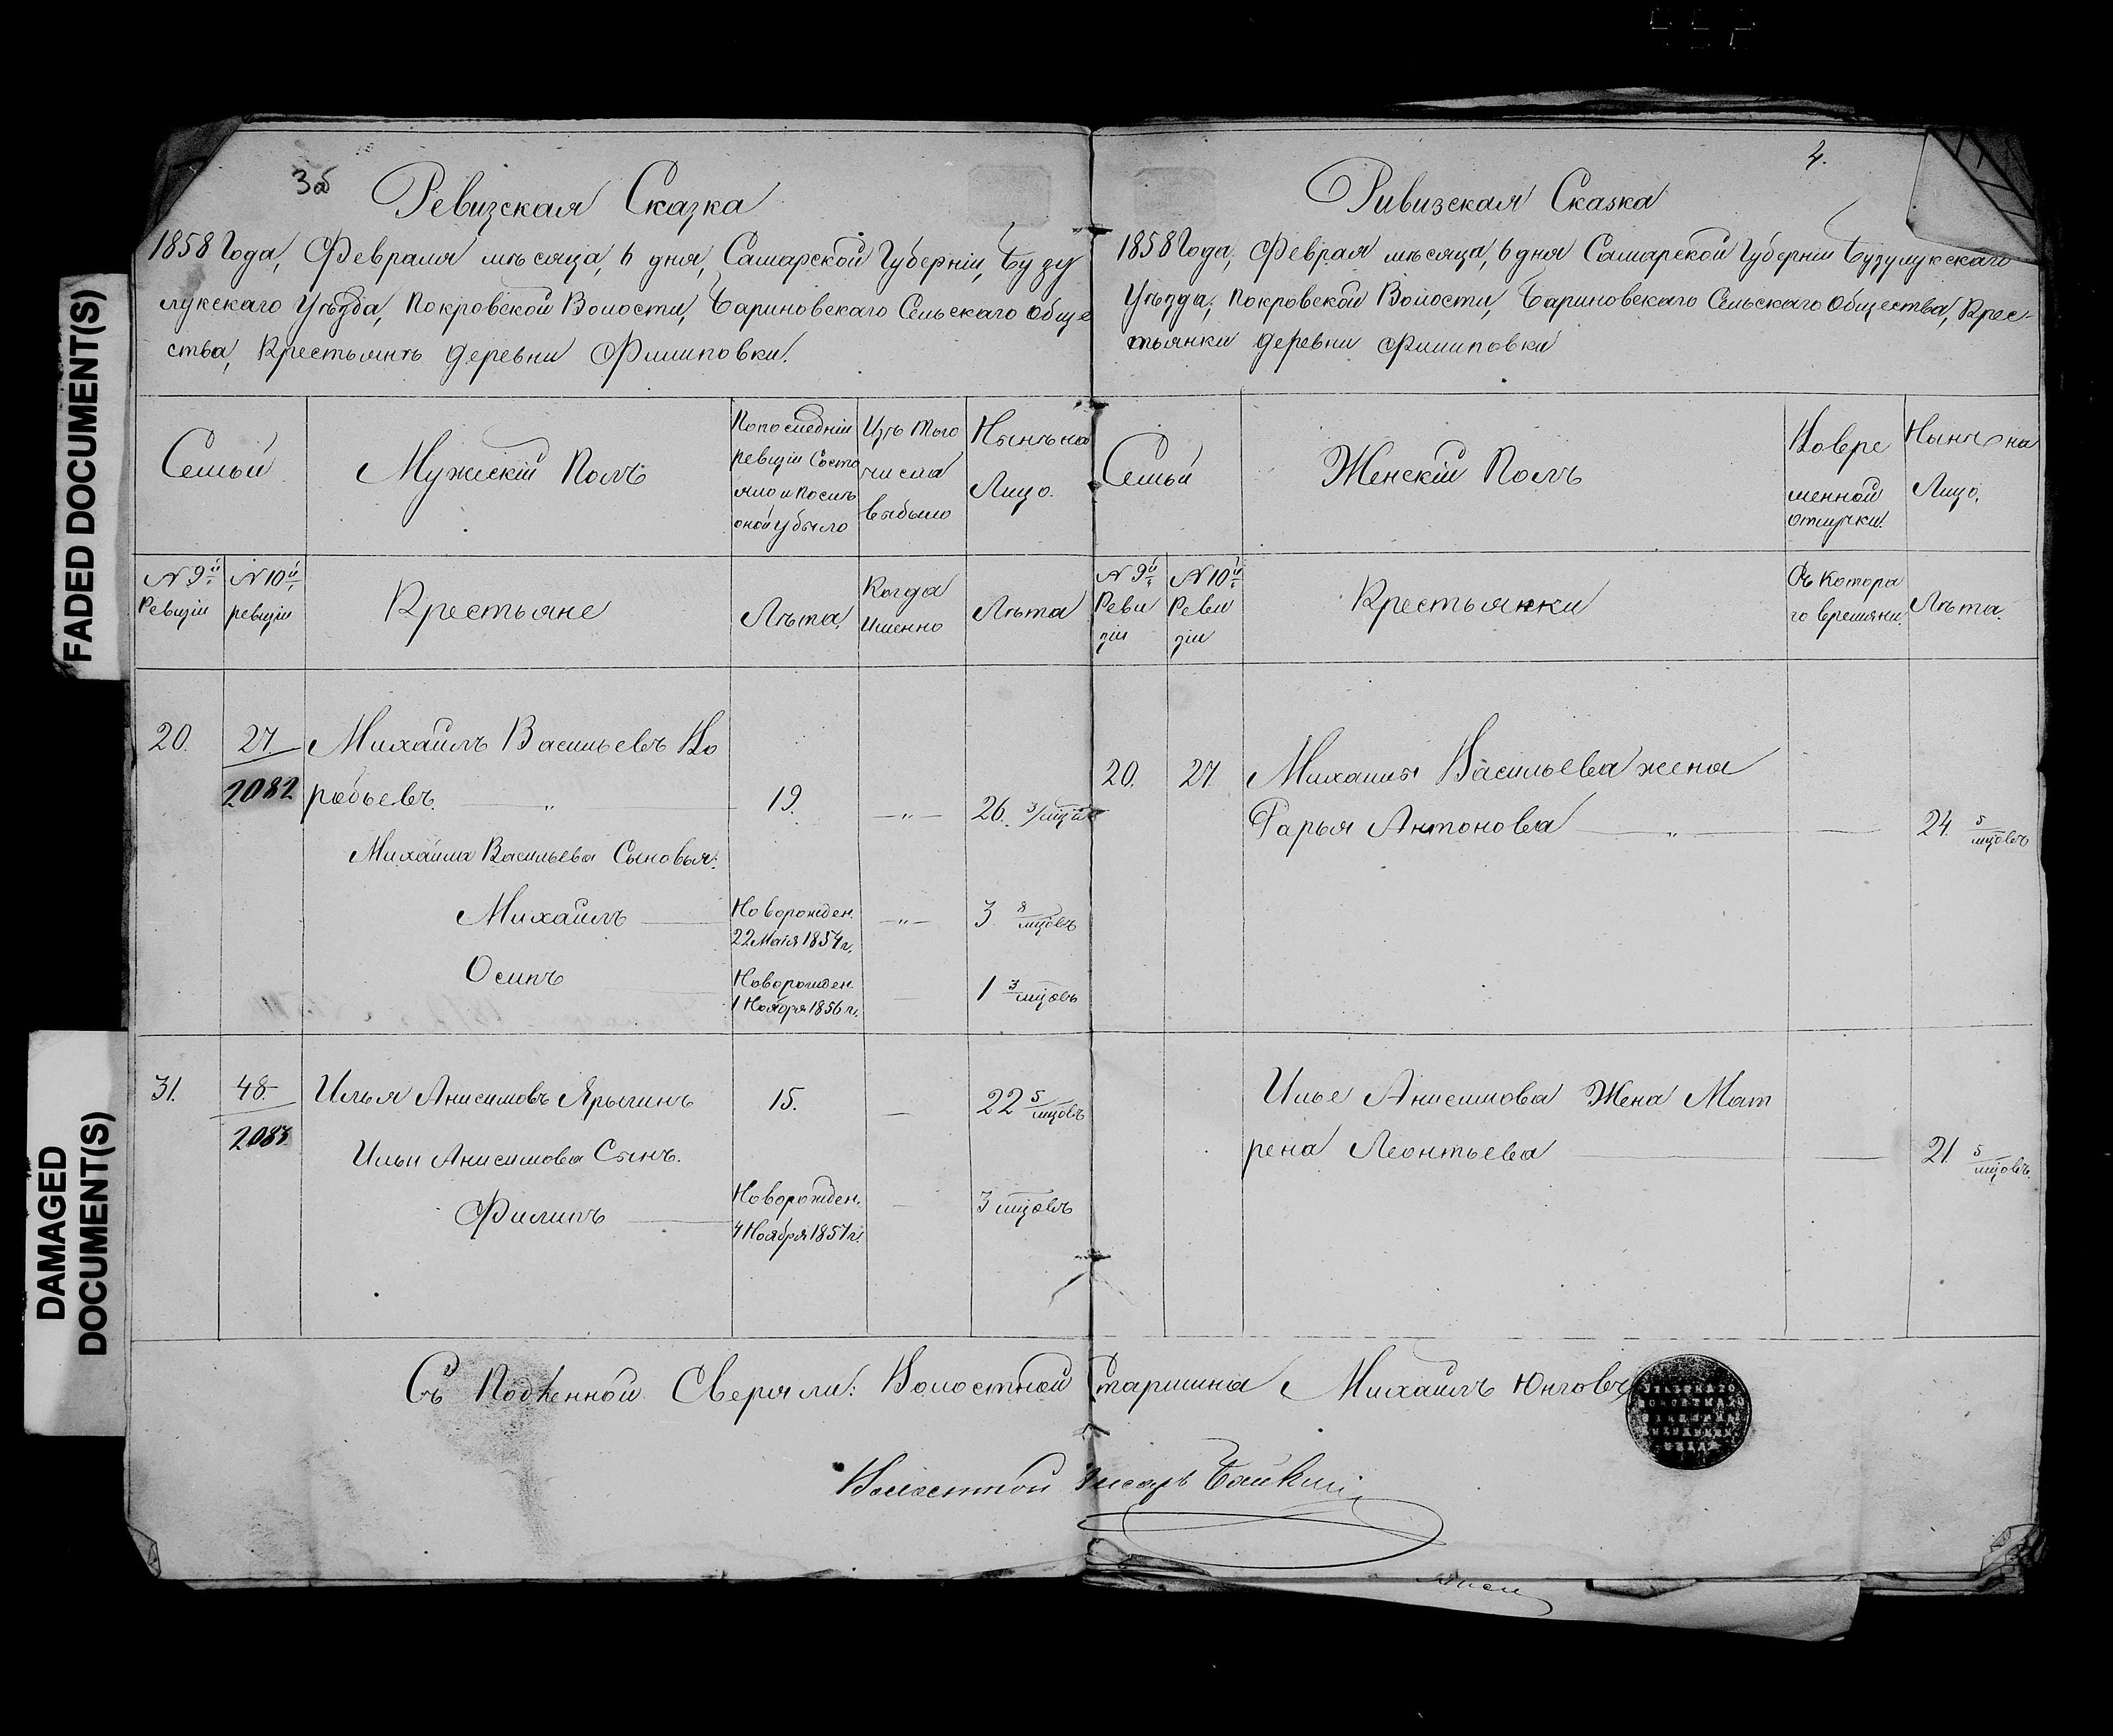 FADED DOCUMENT(S)
DAMAGED
DOCUMENT(S)
3об
Ревизская Сказка
1858 Года, Февраля мѣсяца, 6 дня, Самарской Губерніи, Бузу
лукскаго Уѣзда, Покровской Волости, Бариновскаго Сельскаго Обще
ства, Крестьянъ деревни Филиповки.
Семьи
Мужескій Полъ
По последніи
ревизіи Состо
яло и после
оной убыло
Изъ того
числа
выбыло
Нынѣ на
Лицо.
№ 9й
Ревизіи
№ 10й
ревизіи
Крестьяне
Лѣта,
Когда
имянно
Лѣта
20.
27
2082
Михаилъ Васильевъ Во
робьевъ. „
19.
„
26. 3/мцовъ
Михаила Васильева Сыновья:
Михаилъ
Новорожден.
22 Маія 1854 г.
„
3 8/мцовъ
Осипъ
Новорожден.
1 Ноября 1856 г.
1 3/мцовъ
31.
48
2083
Илья Анисимовъ Ярыгинъ
15.
22 5/мцовъ
Ильи Анисимова Сынъ.
Филипъ
Новорожден.
4 Ноября 1857 г.
3 мцовъ
4.
Ривизская Сказка
1858 Года, Феврал мѣсяца, 6 дня Самарской Губерніи Бузулукскаго
Уѣзда, Покровской Волости, Бариновскаго Сельскаго Общества, Крес-
тьянки деревни Филиповки
Семьи
Женскій Полъ
Во вре
менной
отлучки.
Нынѣ на
Лицо,
№ 9й
Реви
зіи
№ 10й
Реви
зіи
Крестьянки
Съ Котора
го времяни.
Лѣта.
20.
27
Михаила Васильева жена
Дарья Антонова „
24. 5/мцовъ
Илье Анисимова Жена Мат
рена Леонтьева
21. 5/мцовъ
Съ Подленной Сверяли: Волостной Старшина Михаилъ
Волостной Писарь